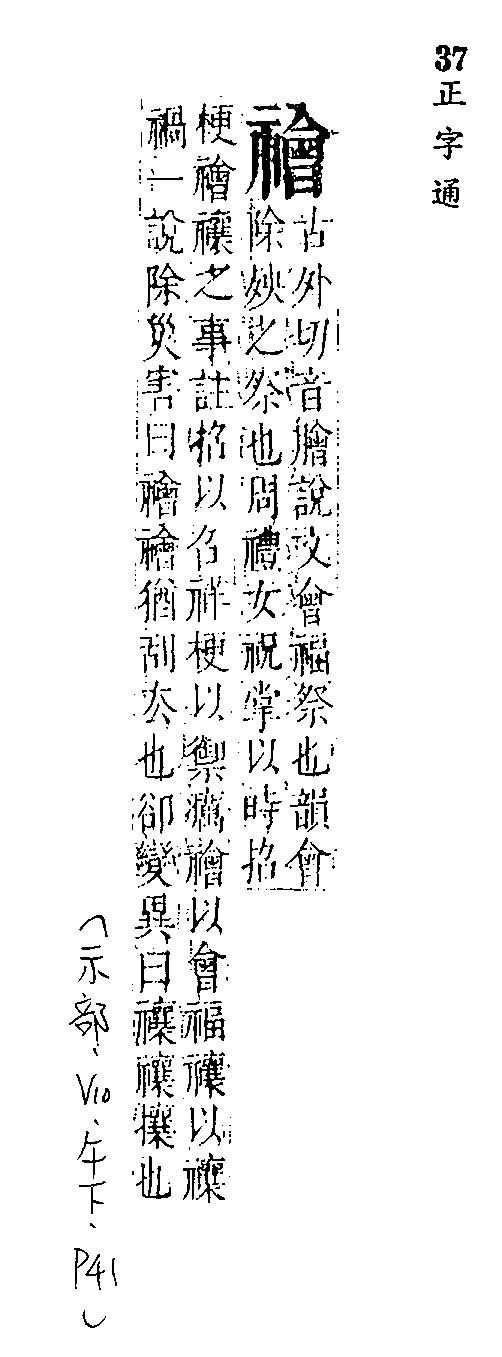 37 正字通
禬
古外切音膾說文會福祭也韻會
除殃之祭也周禮女祝掌以時招
梗禬禳之事註招以召祥梗以禦癘禬以會福禳以禳
禍一說除災害曰禬禬猶刮去也卻變異曰禳禳攘也
(示部、V10、午下、P41)